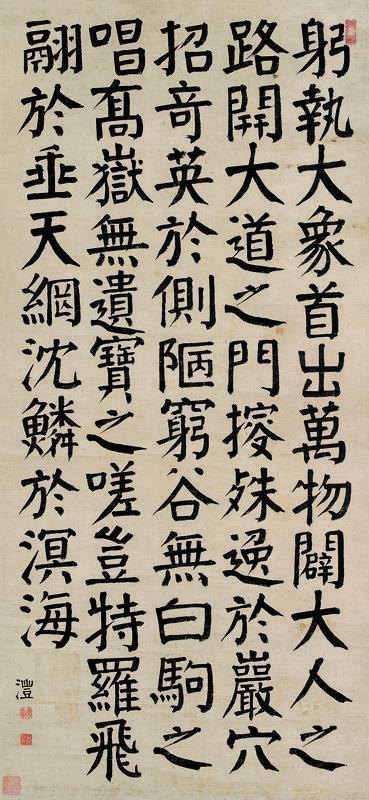 躬執大象首出萬物闢大人之
路開大道之門搜殊逸於巖穴
招竒英於側陋窮谷無白駒之
唱髙嶽無遺寶之嗟豈特羅飛
翮於垂天網沈鱗於溟海
澧